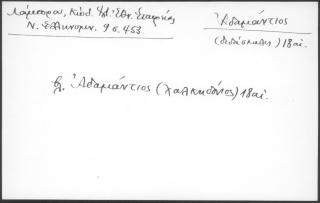 Λάμπρου, Κώδ. Ἱστ. Ἐθν. Ἑταιρείας
Ν. Ἑλληνομν. 9 σ. 453
Ἀδαμάντιος
(διδάσκαλος) 18 αἰ.
βλ. Ἀδαμάντιος (Χαλκηδόνιος) 18 αἰ.